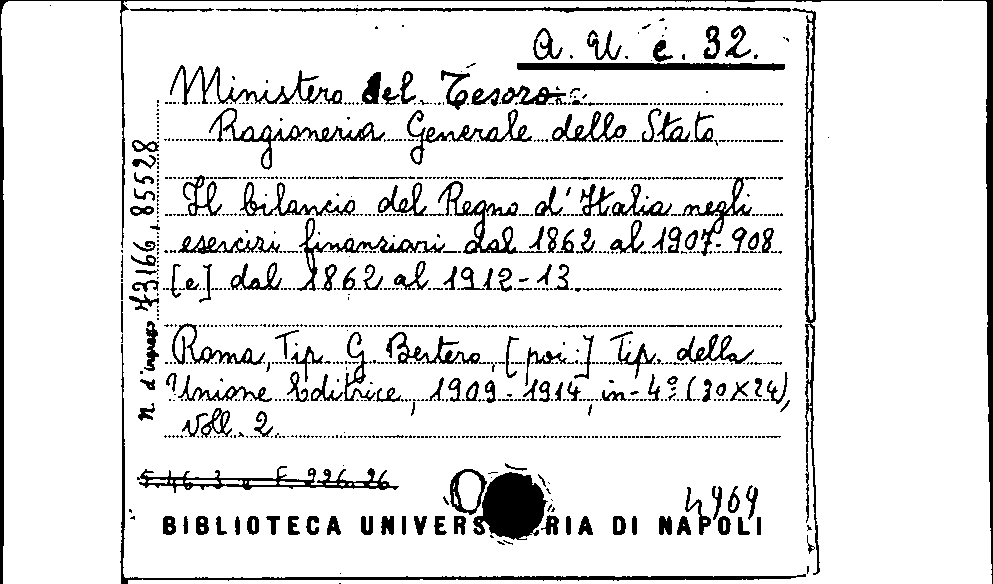 A. U. c. 32.
Ministero del Tesoro
Ragioneria Generale dello Stato
Il bilancio del Regno d'Italia negli
esercizi finanziari dal 1862 al 1907-908
[e] dal 1862 al 1912-13.
Roma, Tip. G. Bertero, [poi:] Tip. della
Unione Editrice, 1909-1914, in-4º (30X24),
voll. 2.
N. d'ingresso 73166, 85528
F. 46. 3. e F. 226. 26
4969
BIBLIOTECA UNIVERS RIA DI NAPOLI